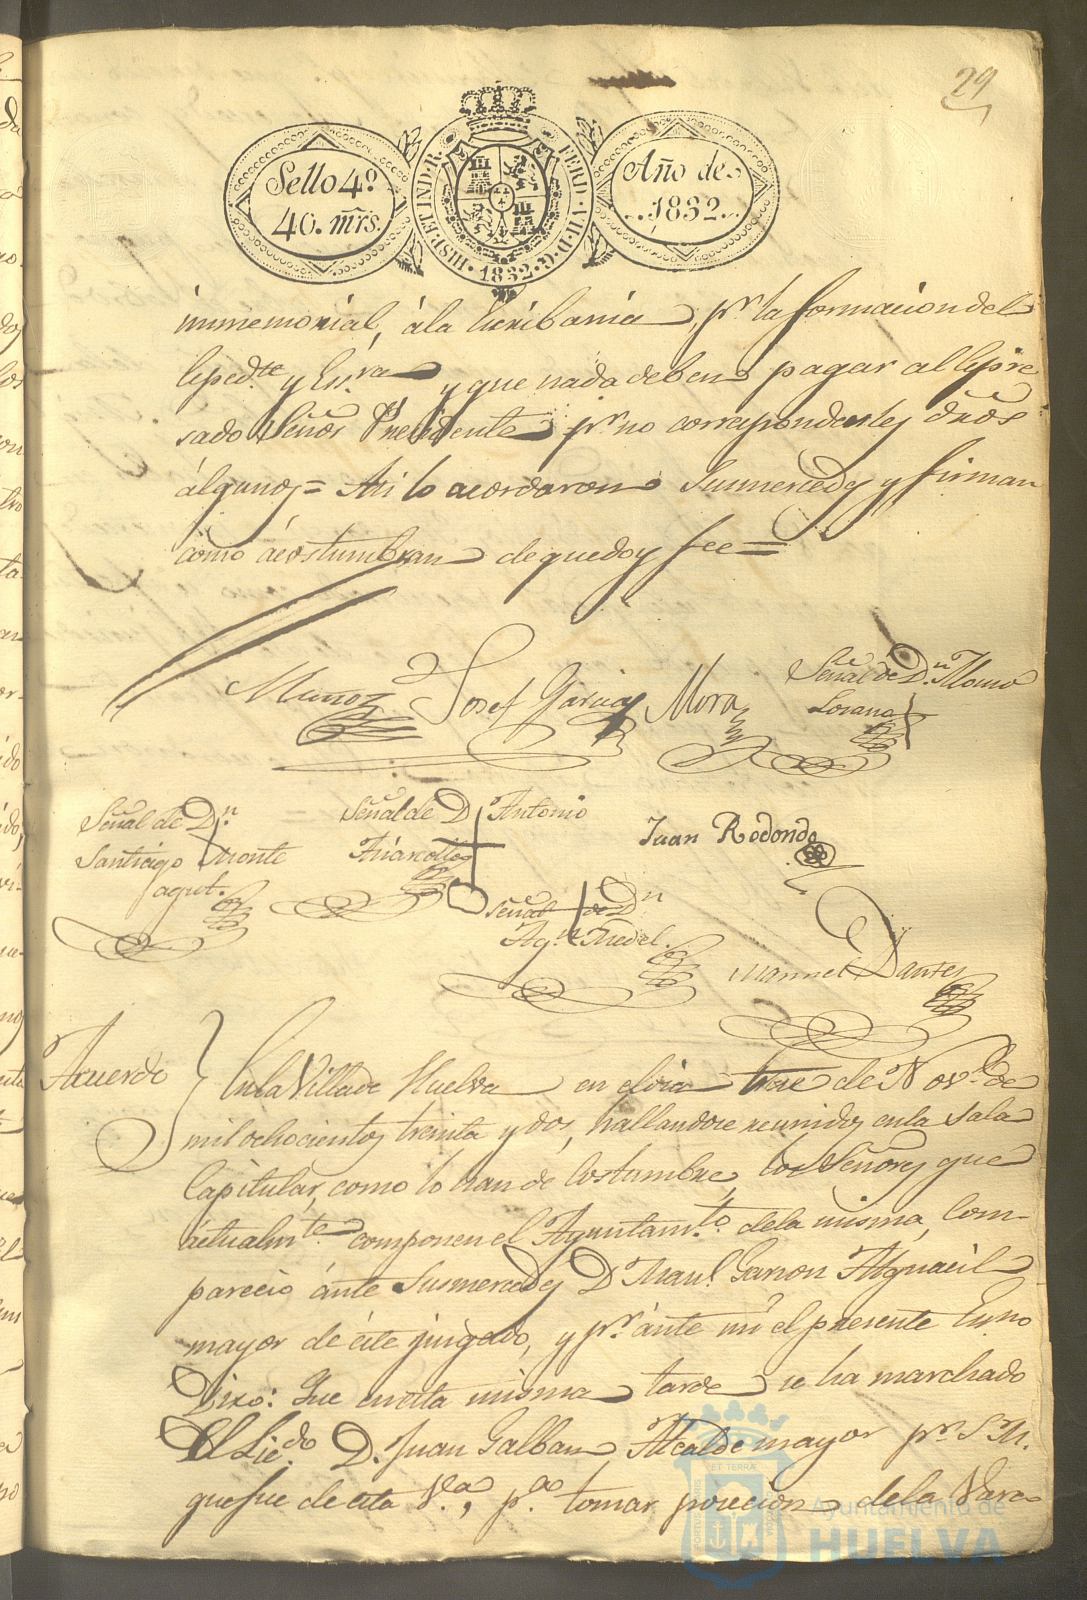 29
Sello 4º
40. mrs.
HISP. ET IND. R.
FERD. VII. D. G.
1832
Año de
1832.
immemorial, á la Escribania, pr. la formacion del
Expedte. y Esra. y que nada deben pagar al Expre
sado Señor Presidente pr. no corresponderles dros
algunos = Asi lo acordaron Susmercedes y firman
como ácostumbran de que doy fee =
Muñoz
Josef Garcia
Mora
Señal de Dn. Alonso
Lozano
Señal de Dn.
Santiago Monte
agut.
Señal de D. Antonio
Juan Rodondo
Señal de Dn
Agn. Medel.
Manuel
Acuerdo
En la Villa de Huelva en el dia trece de Nove. de
mil ochocientos treinta y dos, hallandose reunidos en la Sala
Capitular, como lo han de Costumbre, los Señores que
actualmte. componen el Ayuntamto. de la misma, Com-
pareció ánte Susmercedes D. Manl. Garzon Alguacil
mayor de éste juzgado, y pr. ánte mi el presente Esno
Dixo: Que en esta misma tarde se ha marchado
El Licdo. D. Juan Galban Alcalde mayor pr. S. M.
que fue de esta Va., pa. tomar posecion de la Vara
Ayuntamiento de
HUELVA